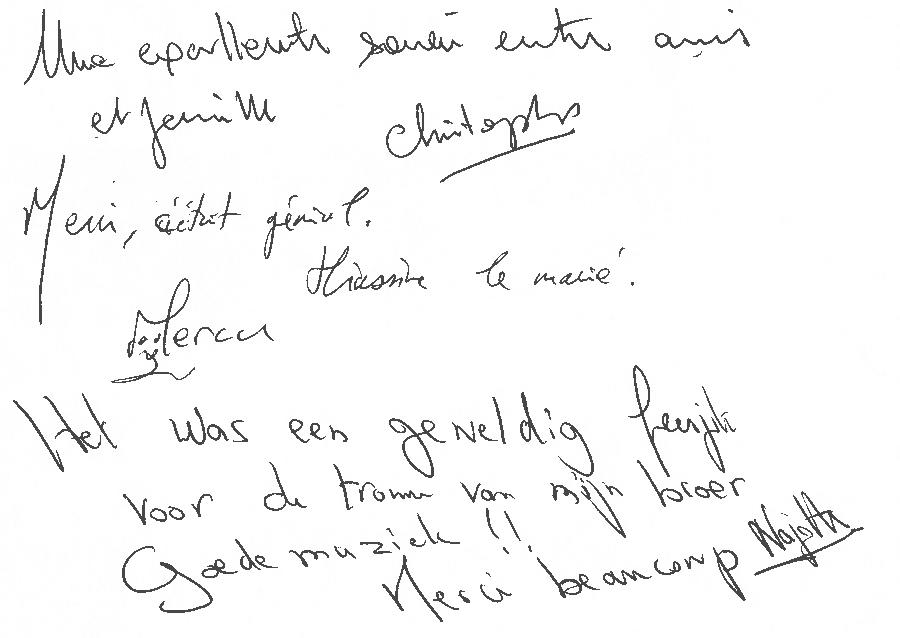 Une excellente soirée entre amis
et famille Christophe
Merci, c'était génial.
le marié.
Het was een geweldig feestje
voor de trouw van mijn broer
Goede muziek !!
Merci beaucoup